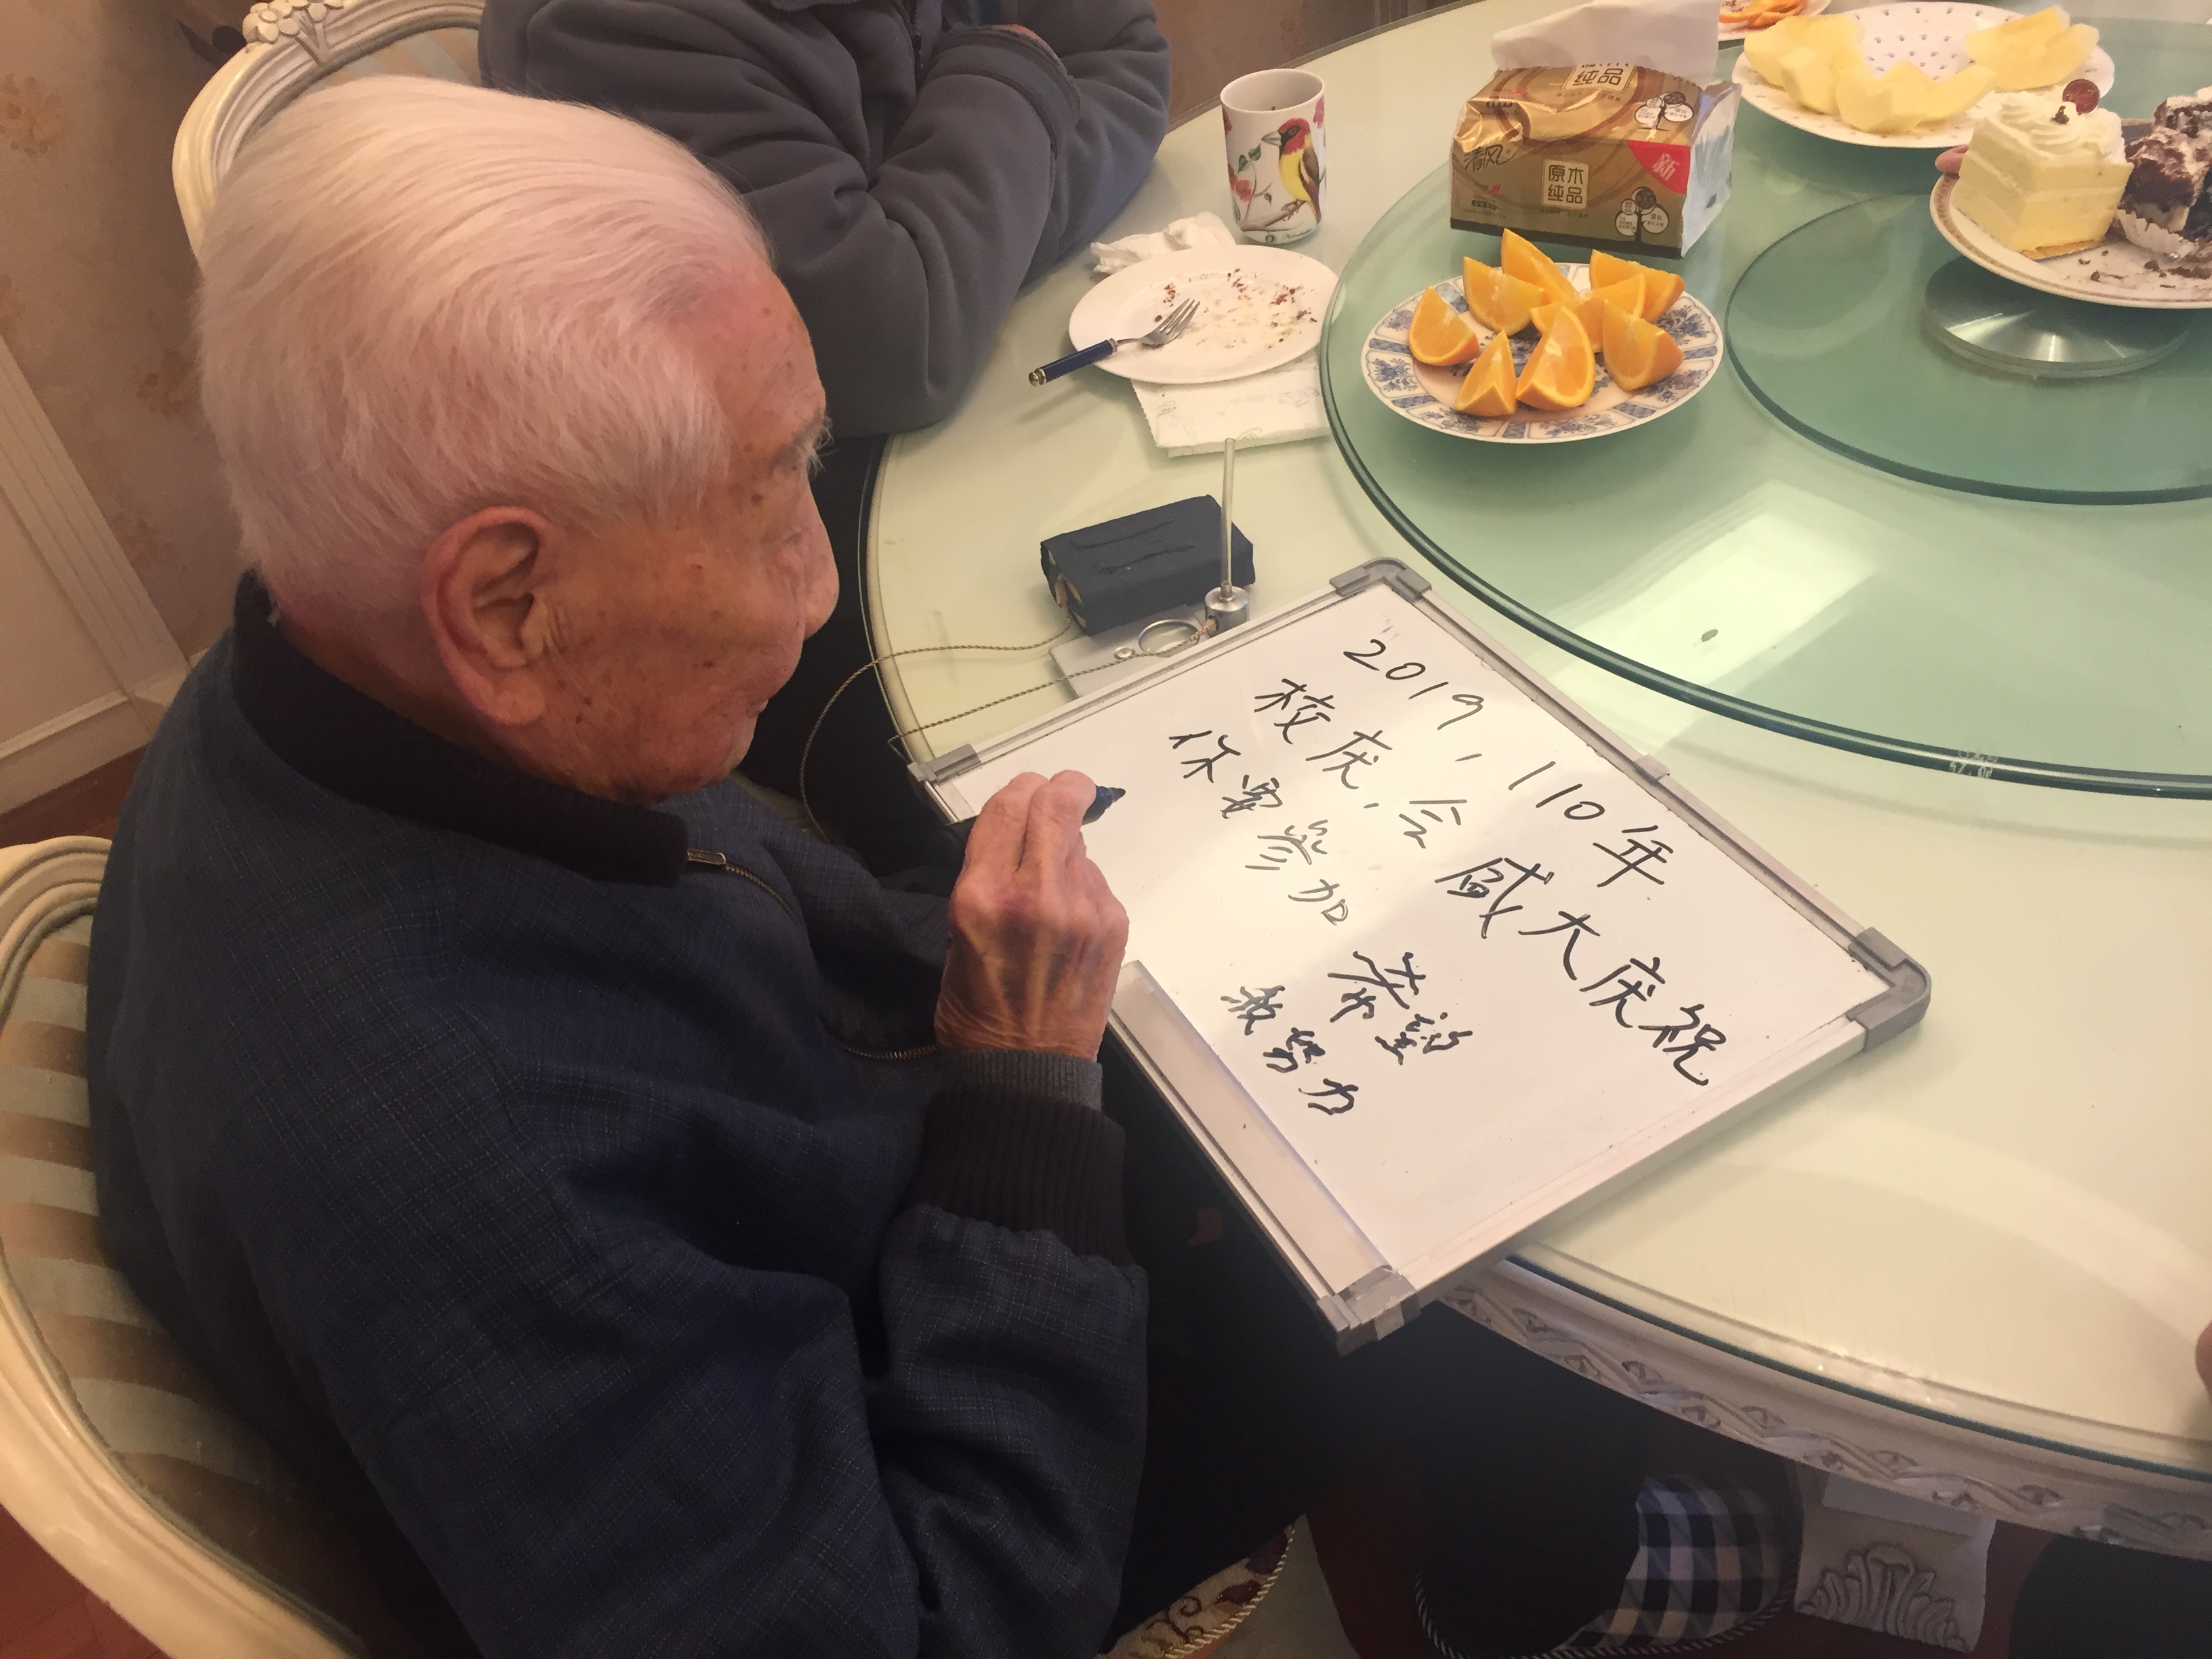 2019，110年
校庆，会盛大庆祝
你要参加
希望
我努力
清风
原木
纯品
新
纯品